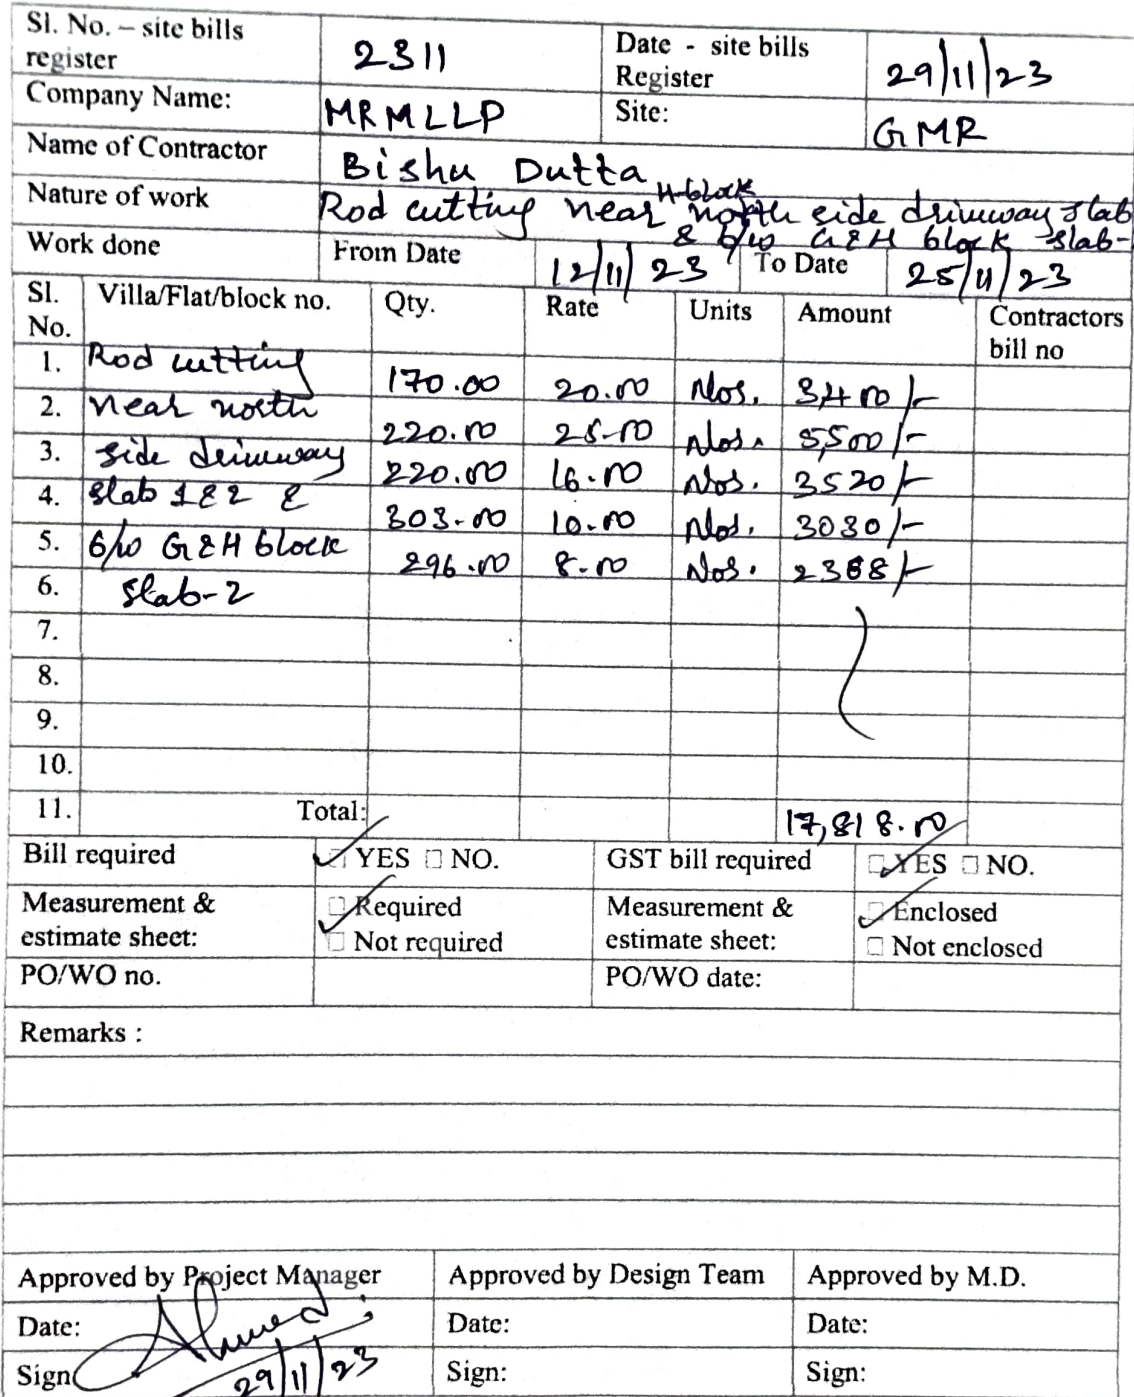 Sl. No. – site bills register 2311 Date - site bills Register 29/11/23
Company Name: MRMLLP Site: GMR
Name of Contractor Bishu Dutta
Nature of work Rod cutting near H-block north side driveway slab
& b/w G&H block slab-
Work done From Date 12/11/23 To Date 25/11/23
Sl. No. Villa/Flat/block no. Qty. Rate Units Amount Contractors bill no
1. Rod cutting 170.00 20.00 Nos. 3400/-
2. near north 220.00 25.00 Nos. 5,500/-
3. side driveway 220.00 16.00 Nos. 3520/-
4. slab 1&2 & 303.00 10.00 Nos. 3030/-
5. b/w G&H block 296.00 8.00 Nos. 2368/-
6. slab-2
7.
8.
9.
10.
11. Total: 17,818.00
Bill required YES NO. GST bill required YES NO.
Measurement & estimate sheet: Required Measurement & estimate sheet: Enclosed
Not required Not enclosed
PO/WO no. PO/WO date:
Remarks :
Approved by Project Manager Approved by Design Team Approved by M.D.
Date: Date: Date:
Sign 29/11/23 Sign: Sign: